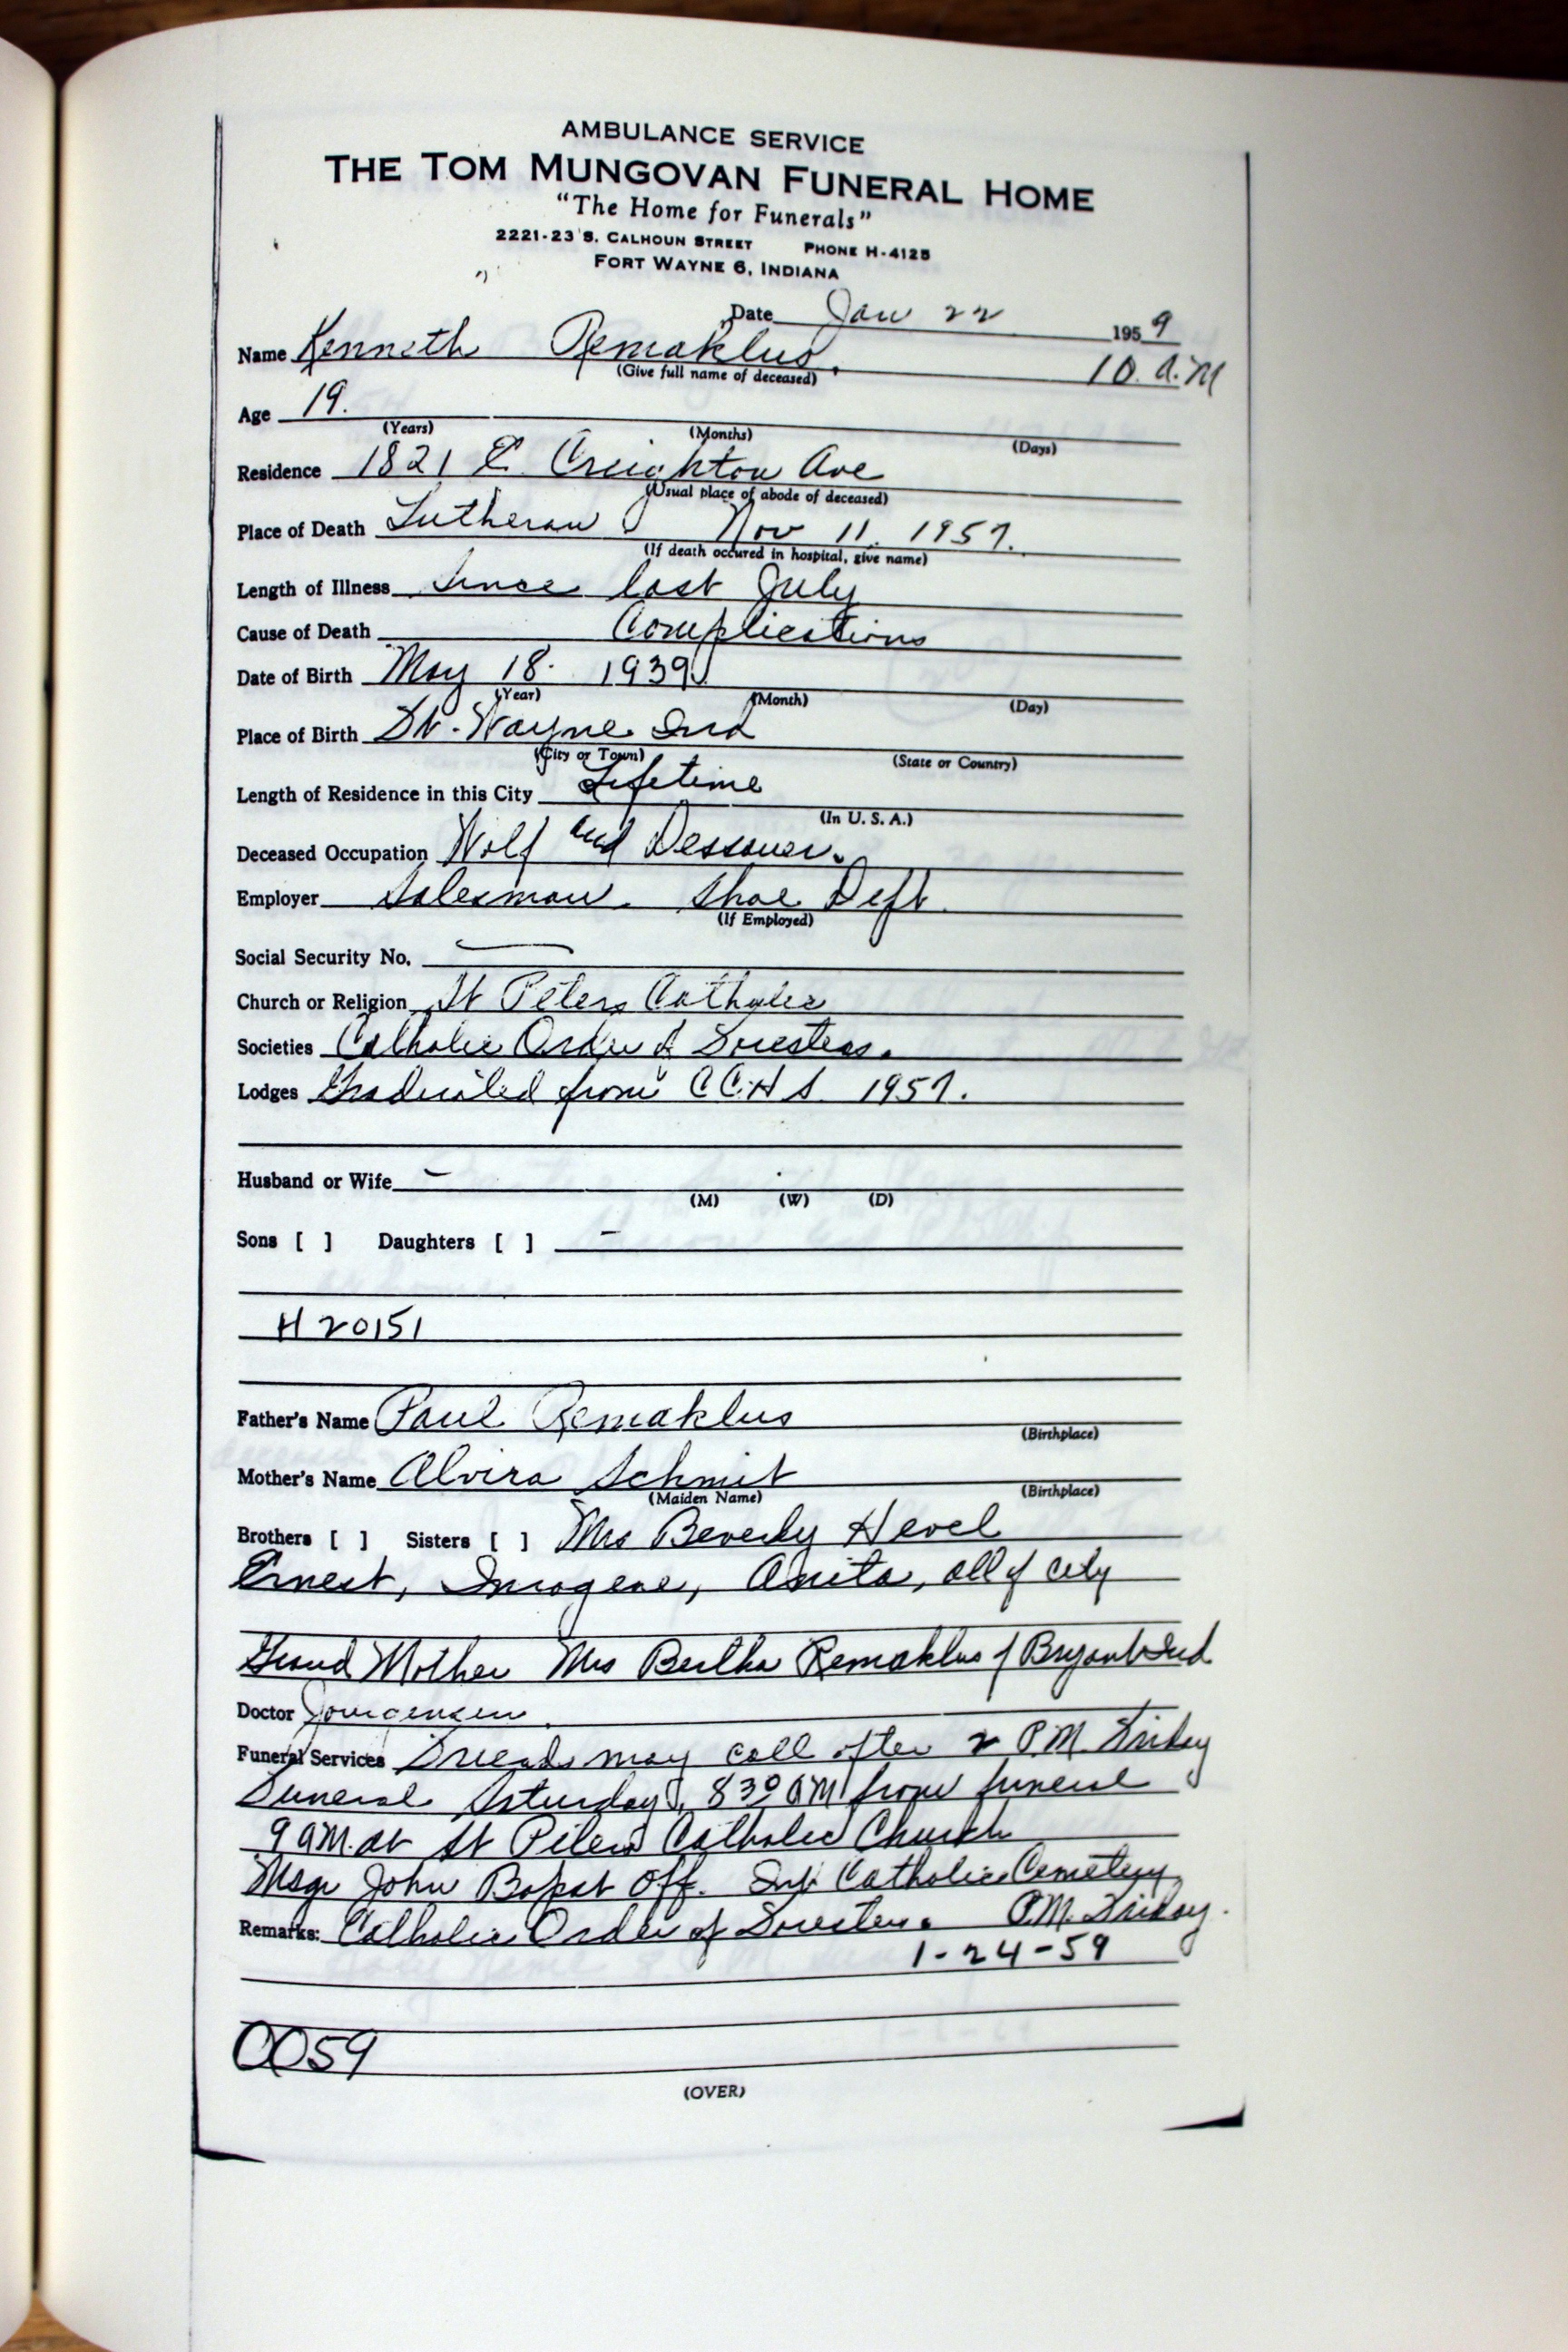 AMBULANCE SERVICE
THE TOM MUNGOVAN FUNERAL HOME
"The Home for Funerals"
2221-23 S. CALHOUN STREET PHONE H-4125
FORT WAYNE 6, INDIANA
Date Jan 22 1959
Name Kenneth Remaklus. 10. a.M
(Give full name of deceased)
Age 19.
(Years) (Months) (Days)
Residence 1821 E. Creighton Ave
(Usual place of abode of deceased)
Place of Death Lutheran Nov 11. 1957.
(If death occured in hospital, give name)
Length of Illness Since last July
Cause of Death Complications
Date of Birth May 18. 1939
(Year) (Month) (Day)
Place of Birth Ft. Wayne Ind
(City or Town) (State or Country)
Length of Residence in this City Lifetime
(In U. S. A.)
Deceased Occupation Wolf and Dessauer.
Employer Salesman. Shoe Dept.
(If Employed)
Social Security No. —
Church or Religion St Peters Catholic
Societies Catholic Order of Foresters.
Lodges Graduated from C.C.H S. 1957.
Husband or Wife –
(M) (W) (D)
Sons [ ] Daughters [ ] –
H 20151
Father's Name Paul Remaklus
(Birthplace)
Mother's Name Alvira Schmit
(Maiden Name) (Birthplace)
Brothers [ ] Sisters [ ] Mrs Beverly Hevel
Ernest, Imogene, Anita, all of city
Grand Mother Mrs Bertha Remaklus of Bryant Ind
Doctor Jourgensen.
Funeral Services Friends may call after 2 P.M. Friday
Funeral Saturday, 8 30 AM from funeral
9 AM. at St Peters Catholic Church
Msgr John Bapst Off. Int Catholic Cemetery
Remarks: Catholic Order of Foresters. P.M. Friday.
1-24-59
0059
(OVER)